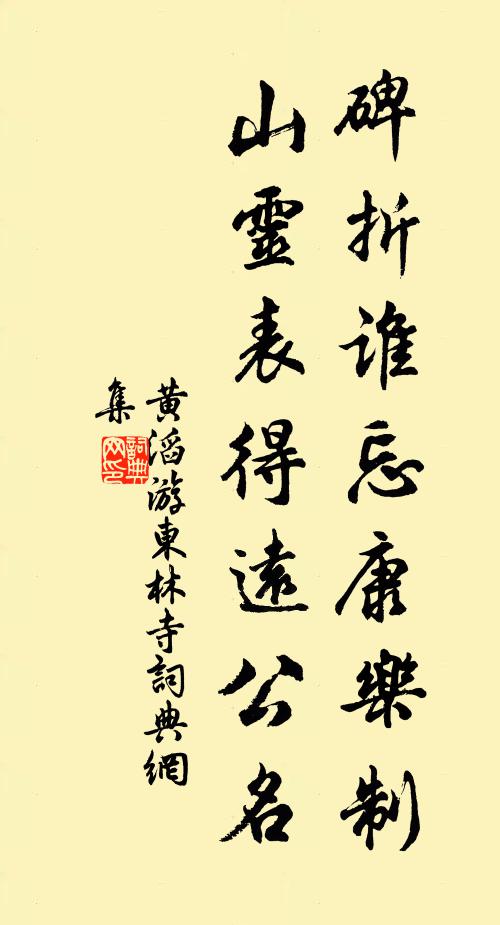 碑折誰忘康樂制
山靈表得遠公名
黃滔游東林寺詞典網
集
詞典網印